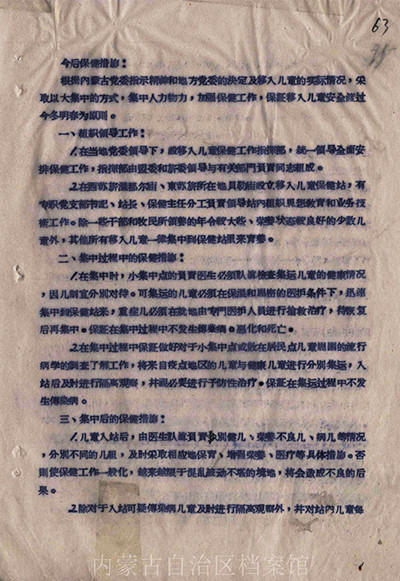 63
今后保健措施:
根据内蒙古党委指示精神和地方党委的决定及移入儿童的实际情况,采
取以大集中的方式,集中人力物力,加强保健工作,保证移入儿童安全渡过
今冬明春为原则。
一、组织领导工作:
1.在当地党委领导下,成移入儿童保健工作指挥部,统一领导全面安
排保健工作,指挥部由盟委和旗委领导与有关部門負責同志組成。
2.在西苏旗溫都尔庙、東苏旗所在地貝勒庙成立移入儿童保健站,有
专职党支部书記、站长、保健主任分工負責領导站内組织思想教育和业务技
術工作。除一些干部和牧民所領养的年令較大些、荣养状态較良好的少数儿
童外,其他所有移入儿童一律集中到保健站里来育养。
二、集中过程中的保健措施:
1.在集中时,小集中点的負責医生必須認真檢查集运儿童的健康情况
,因儿制宜分別对待。可集运的儿童必須在保溫和周密的医护条件下,迅速
集中到保健站来,重症儿必須在就地由专門医护人員进行搶救治疗,待恢复
后再集中。保証在集中过程中不发生傳染病。恶化和死亡。
2.在集中过程中保証做好对于小集中点或散在居民点儿童周圍的流行
病学的調查了解工作,将来自疫点地区的儿童与健康儿童进行分別集运,入
站后及时进行隔离观察,并視必要进行予防性治疗。保証在集运过程中不发
生傳染病。
三、集中后的保健措施:
1.儿童入站后,由医生認真負責分別健儿、荣养不良儿、病儿等情况
,分別不同的儿組,及时采取相应地保育、增强荣养、医疗等具体措施。否
則使保健工作一般化,越来越限于混乱被动不堪的境地,将会造成不良的后
果。
2.除对于入站可疑傳染病儿童及时进行隔离观察外,并对站内儿童每
内蒙古自治区档案馆